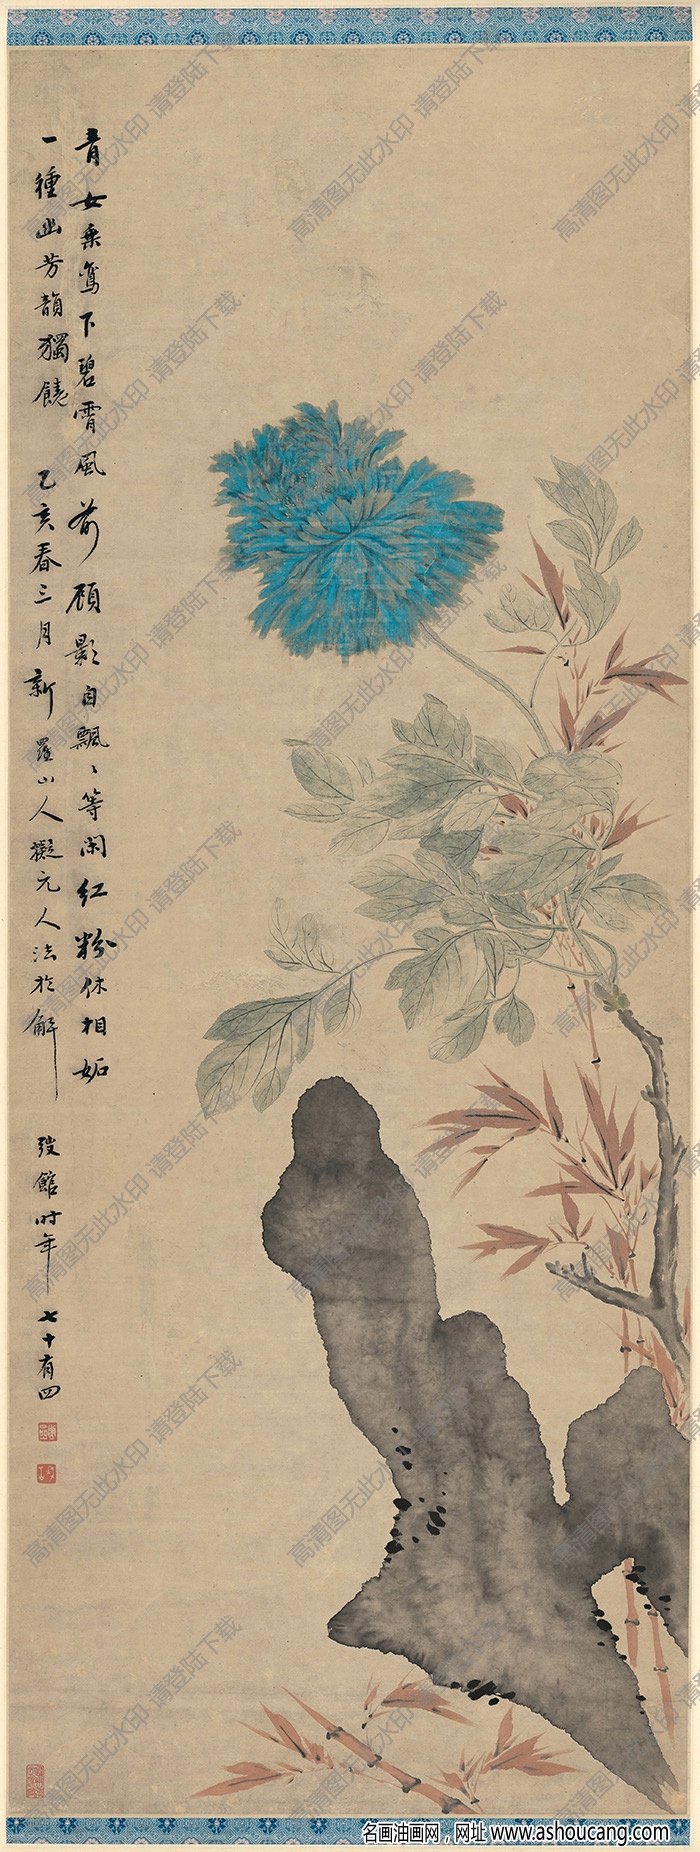 青女乘鸞下碧霄風前顧影自飄〻等閑紅粉休相妬
一種幽芳韻獨饒 乙亥春三月新羅山人擬元人法於解
弢館時年七十有四
高清图无此水印 请登陆下载
名画油画网,网址 www.ashoucang.com